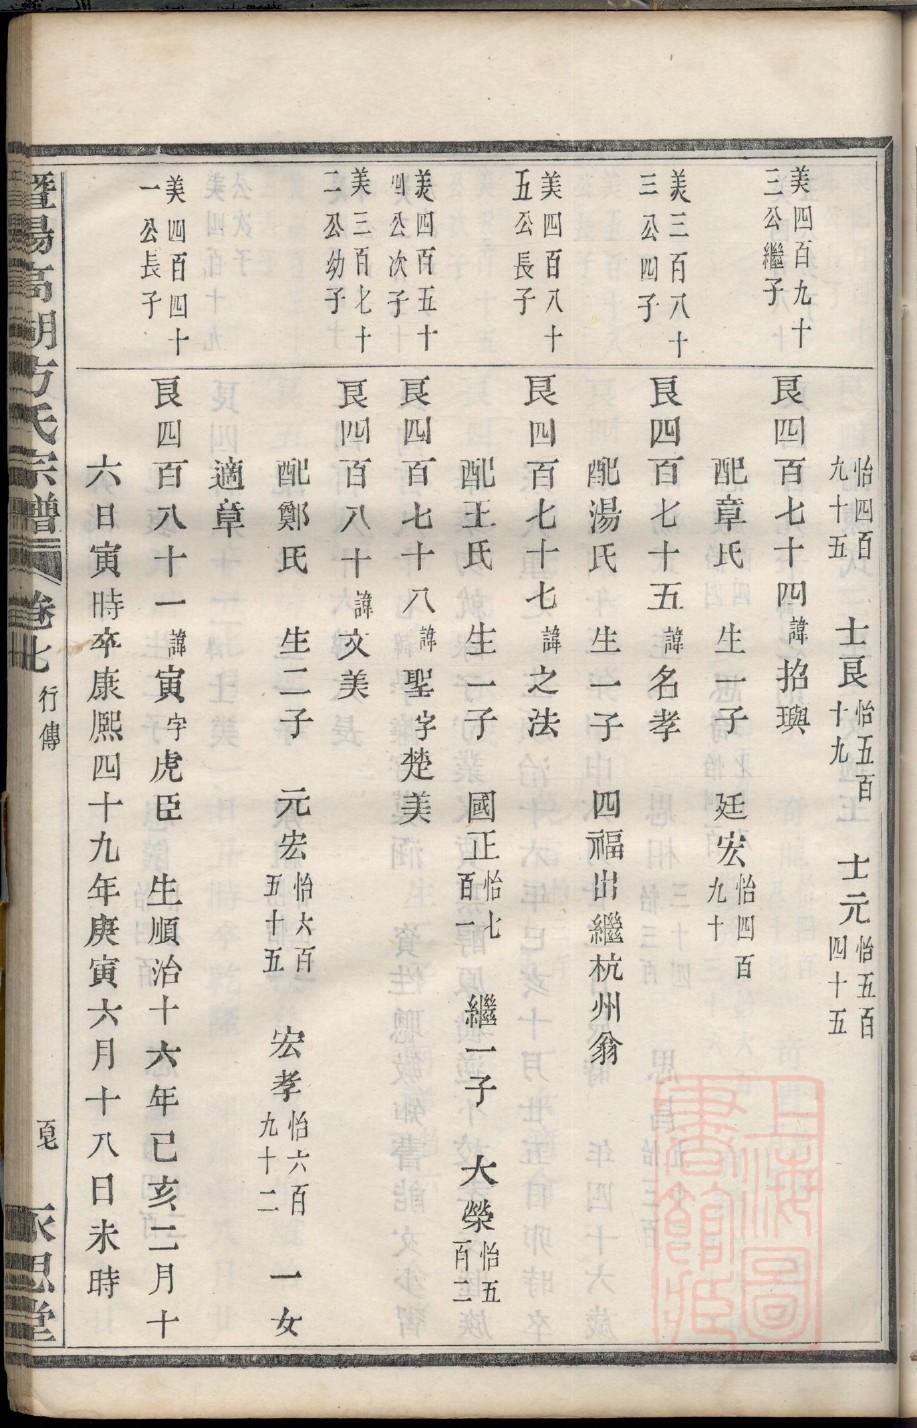 怡四百九十五 士良怡五百十九 士元怡五百四十五
美四百九十三公繼子
良四百七十四諱招璵
配章氏 生一子 廷宏怡四百九十
美三百八十三公四子
良四百七十五諱名孝
配湯氏 生一子 四福出繼杭州翁
美四百八十五公長子
良四百七十七諱之法
配王氏 生一子 國正怡七百一 繼一子 大榮怡五百二
美四百五十四公次子
良四百七十八諱聖字楚美
美三百七十二公幼子
良四百八十諱文美
配鄭氏 生二子 元宏怡六百五十五 宏孝怡六百九十二 一女
適章
美四百四十一公長子
良四百八十一諱寅字虎臣 生順治十六年己亥二月十
六日寅時卒康熙四十九年庚寅六月十八日未時
暨陽高湖方氏宗譜 卷七 行傳 永思堂
上海圖書館藏